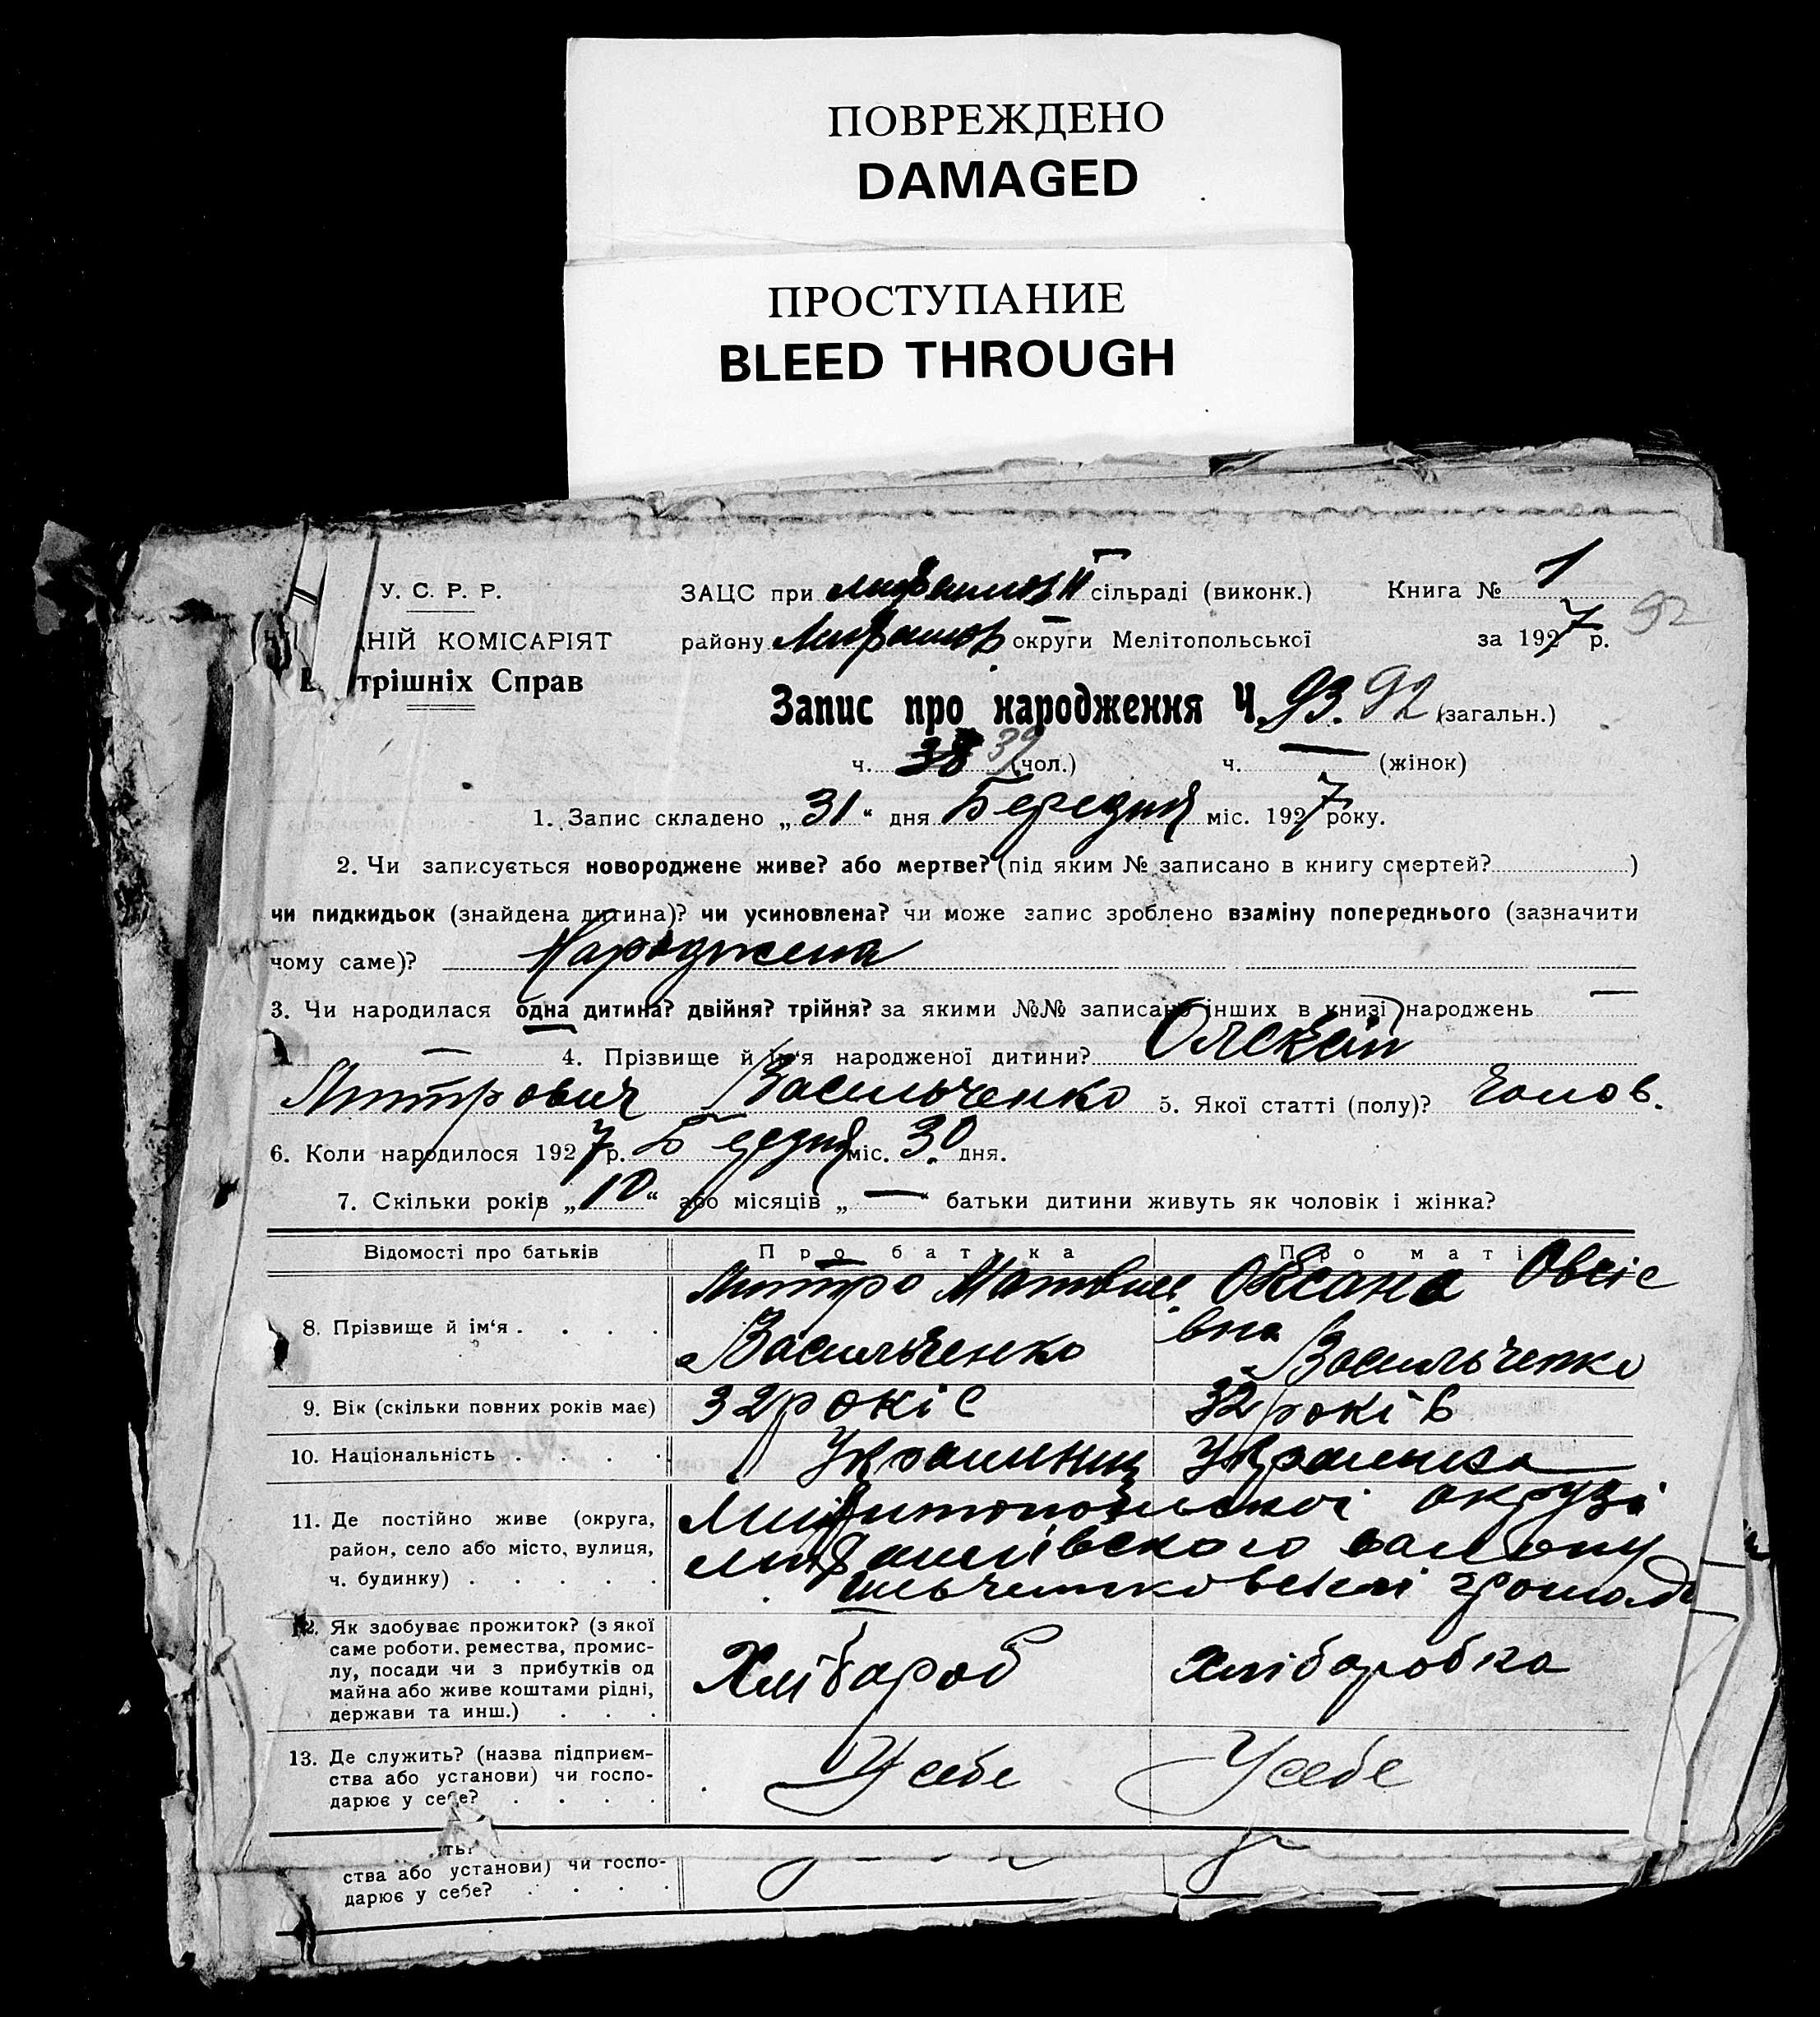 ПОВРЕЖДЕНО
DAMAGED
ПРОСТУПАНИЕ
BLEED THROUGH
У. С. Р. Р. ЗАЦС при сільраді (виконк.) Книга № 1
НІЙ КОМІСАРІЯТ району округи Мелітопольської за 1927 р. 92
трішніх Справ
Запис про народження Ч. 93. 92 (загальн.)
ч. 38 39 (чол.) ч. — (жінок)
1. Запис складено „ 31 “ дня Березня міс. 1927 року.
2. Чи записується новороджене живе? або мертве? (під яким № записано в книгу смертей? )
чи пидкидьок (знайдена дитина)? чи усиновлена? чи може запис зроблено взаміну попереднього (зазначити
чому саме)? Народжена
3. Чи народилася одна дитина? двійня? трійня? за якими №№ записано інших в книзі народжень —
— 4. Прізвище й ім‘я народженої дитини? Олексій
Митрович Васильченко 5. Якої статті (полу)? Чолов.
6. Коли народилося 1927 р. Березня міс. 30 дня.
7. Скільки років „ 10 “ або місяців „ — “ батьки дитини живуть як чоловік і жінка?
Відомості про батьків Про батька Про маті
Митро Матвиев Оксана Овсіє
8. Прізвище й ім‘я . . . . Васильченко вна Васильченко
9. Вік (скільки повних років має) 32 рокіс 32 років
10. Національність . . . . Украинец Украенка
11. Де постійно живе (округа, округі
район, село або місто, вулиця,
ч. будинку) . . . . .
12. Як здобуває прожиток? (з якої
саме роботи. ремества, промис-
лу, посади чи з прибутків од Хлібароб хлібаробка
майна або живе коштами рідні,
держави та инш.) . . .
13. Де служить? (назва підприєм-
ства або установи) чи госпо- У себе У себе
дарює у себе? . . . .
ить?
ства або установи) чи госпо-
дарює у себе? . . . .